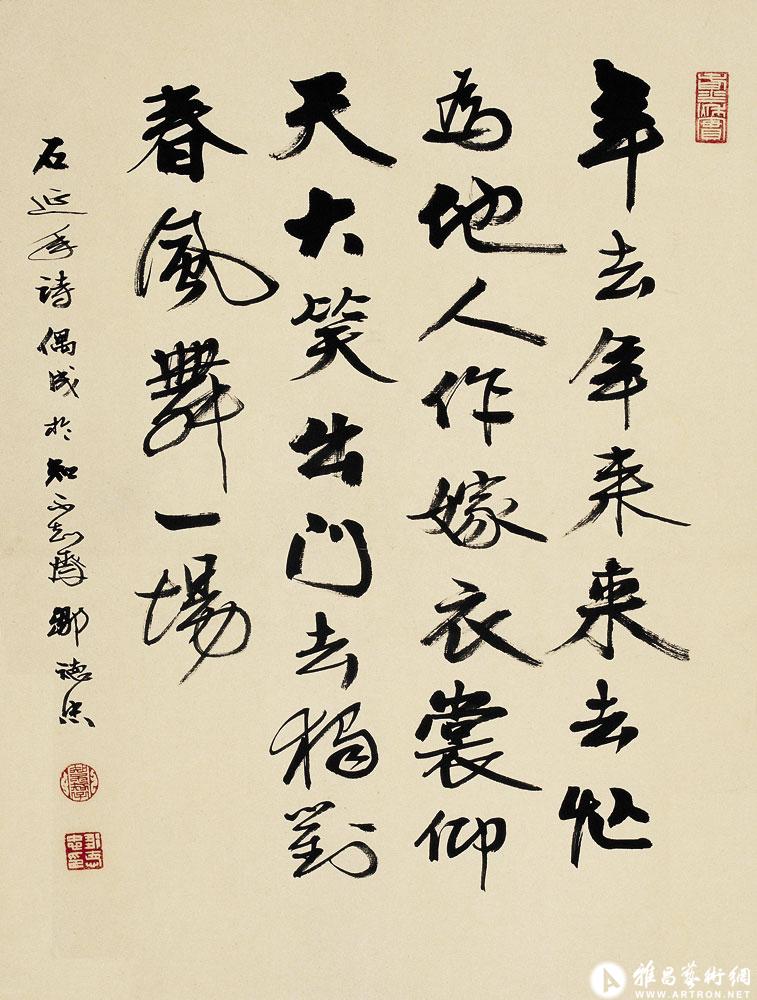 年去年来来去忙
為他人作嫁衣裳仰
天大笑出门去獨對
春風舞一場
石延年詩偶成於知不知齋鄒德忠
雅昌藝術網
WWW.ARTRON.NET